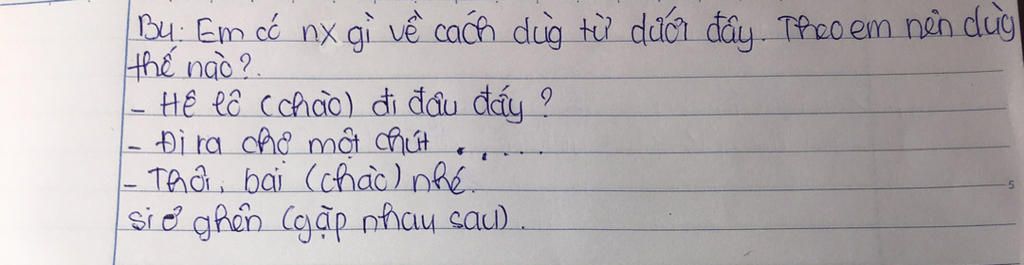 B4: Em có nx gì về cách dùg từ dưới đây. Theo em nên dùg
thế nào?.
- Hê lô (chào) đi đâu đấy?
- Đi ra chợ một chút . , . . . .
- Thôi, bai (chào) nhé.
si ơ ghên (gặp nhau sau).
5